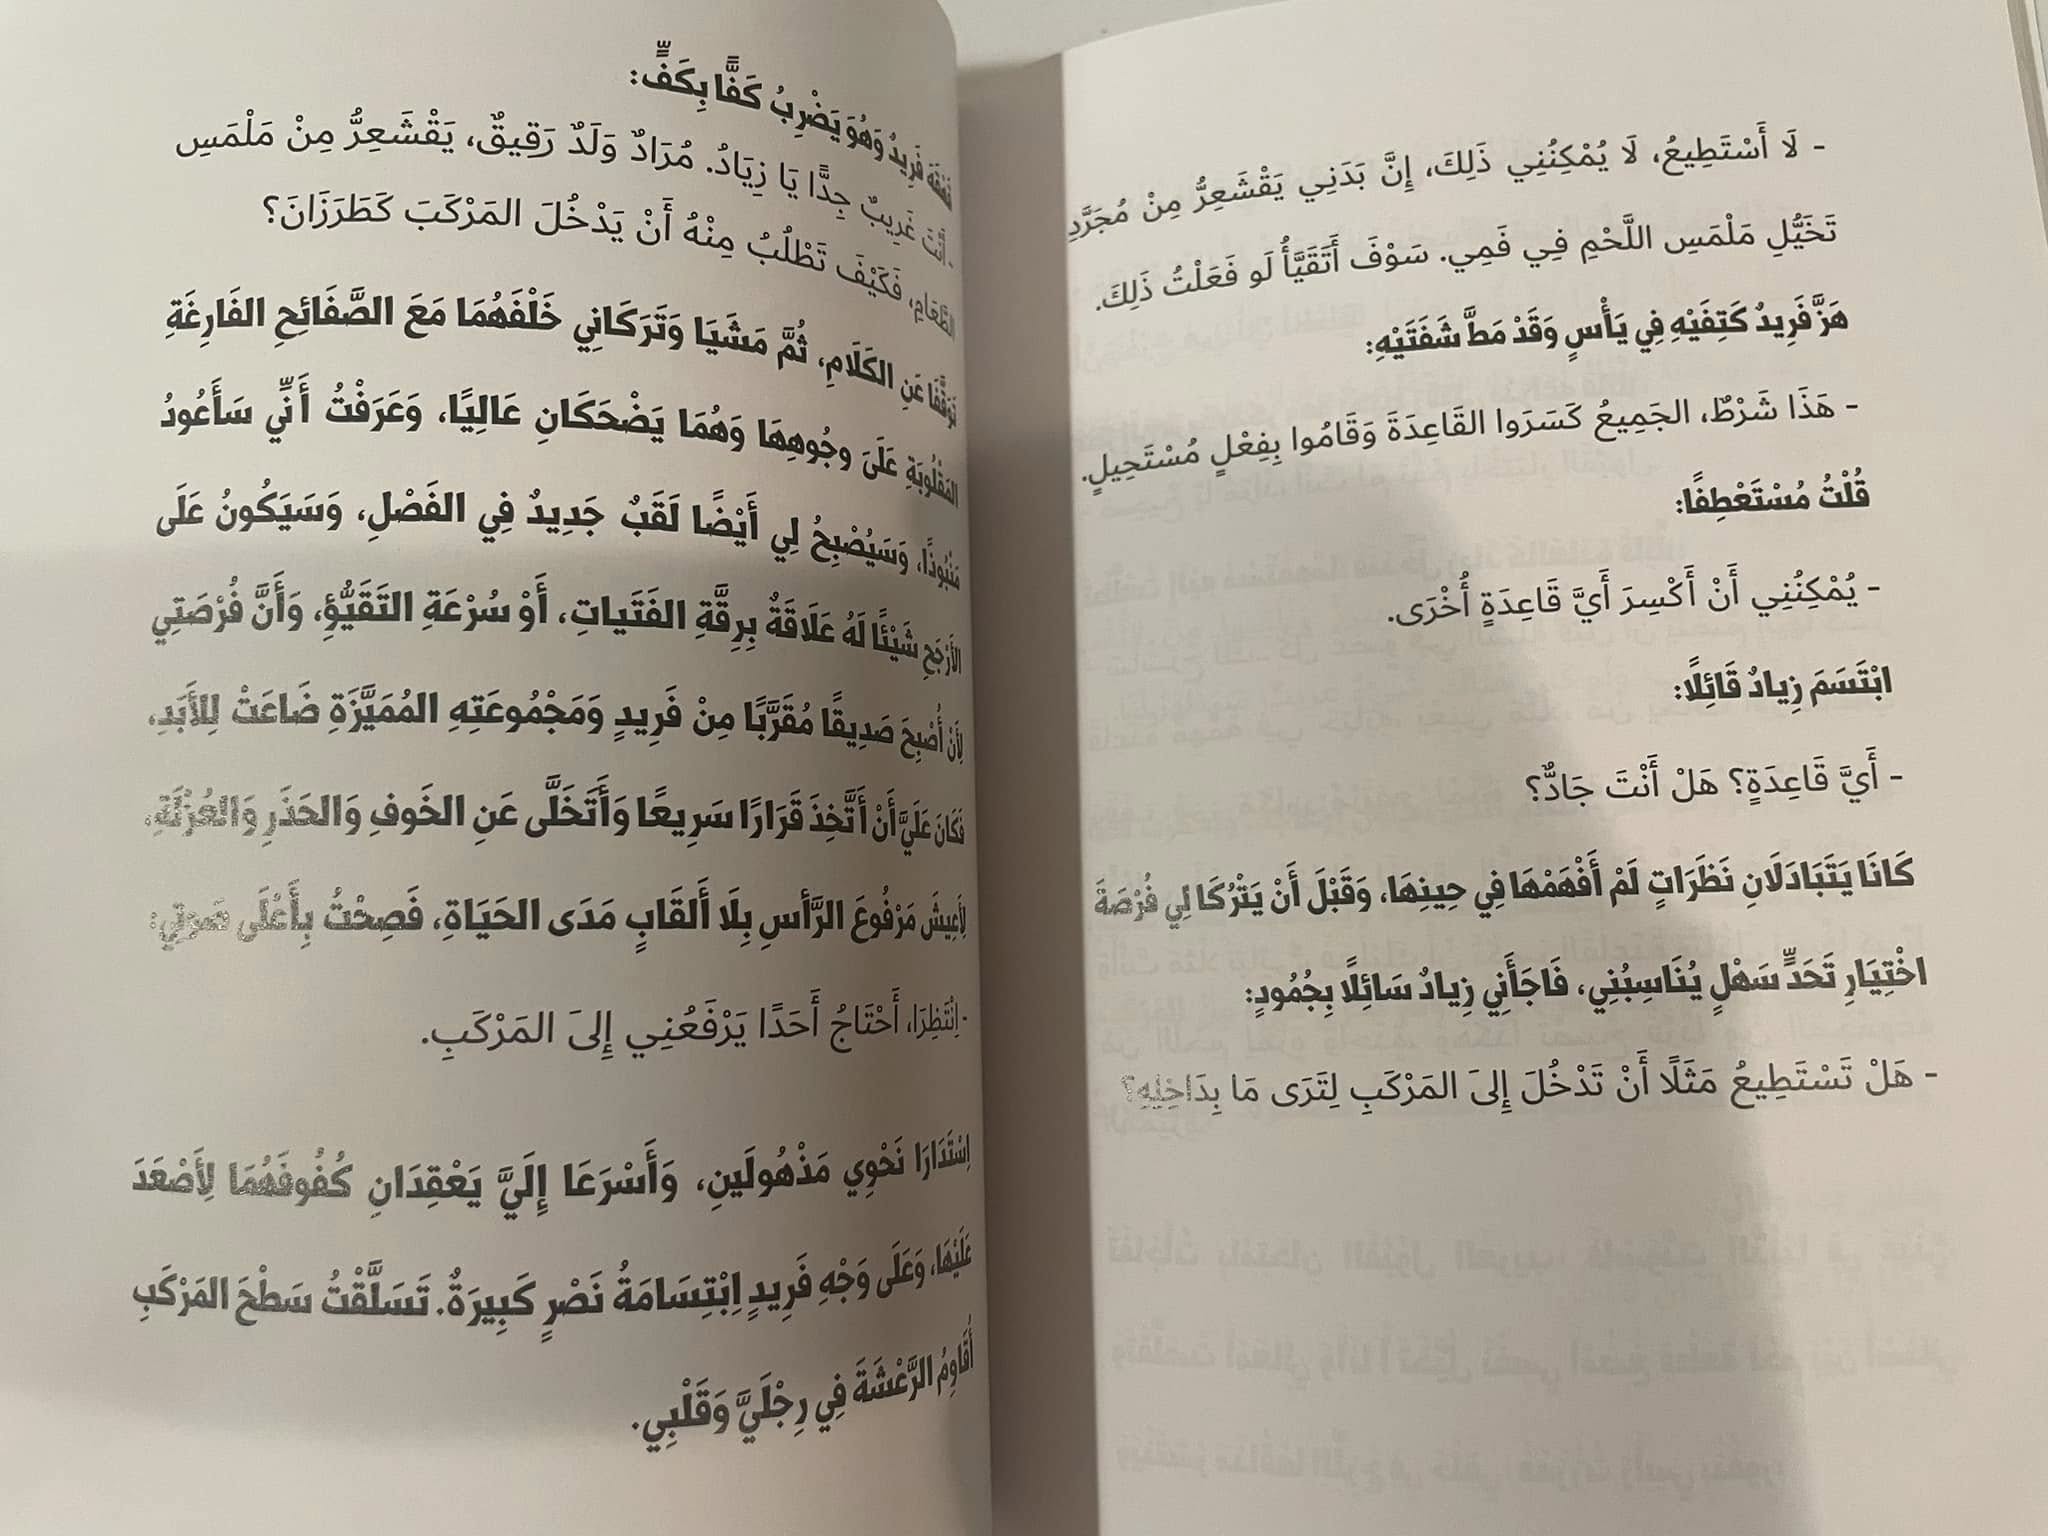 - لَا أَسْتَطِيعُ، لَا يُمْكِنُنِي ذَلِكَ، إِنَّ بَدَنِي يَقْشَعِرُّ مِنْ مُجَرَّدِ
تَخَيُّلِ مَلْمَسِ اللَّحْمِ فِي فَمِي. سَوْفَ أَتَقَيَّأُ لَو فَعَلْتُ ذَلِكَ.
هَزَّ فَرِيدُ كَتِفَيْهِ فِي يَأْسٍ وَقَدْ مَطَّ شَفَتَيْهِ:
- هَذَا شَرْطٌ، الجَمِيعُ كَسَرَوا القَاعِدَةَ وَقَامُوا بِفِعْلٍ مُسْتَحِيلٍ.
قُلْتُ مُسْتَعْطِفًا:
- يُمْكِنُنِي أَنْ أَكْسِرَ أَيَّ قَاعِدَةٍ أُخْرَى.
ابْتَسَمَ زِيادُ قَائِلًا:
- أَيَّ قَاعِدَةٍ؟ هَلْ أَنْتَ جَادٌّ؟
كَانَا يَتَبَادَلَانِ نَظَرَاتٍ لَمْ أَفْهَمْهَا فِي حِينِهَا، وَقَبْلَ أَنْ يَتْرُكَا لِي فُرْصَةَ
اخْتِيَارِ تَحَدٍّ سَهْلٍ يُنَاسِبُنِي، فَاجَأَنِي زِيادُ سَائِلًا بِجُمُودٍ:
- هَلْ تَسْتَطِيعُ مَثَلًا أَنْ تَدْخُلَ إِلىَ المَرْكَبِ لِتَرَى مَا بِدَاخِلِهِ؟
فَرِيدُ وَهُوَ يَضْرِبُ كَفًّا بِكَفٍّ:
- أَنْتَ غَرِيبٌ جِدًّا يَا زِيَادُ. مُرَادٌ وَلَدٌ رَقِيقٌ، يَقْشَعِرُّ مِنْ مَلْمَسِ
الطَّعَامِ، فَكَيْفَ تَطْلُبُ مِنْهُ أَنْ يَدْخُلَ المَرْكَبَ كَطَرَزَانَ؟
تَوَقَّفَا عَنِ الكَلَامِ، ثُمَّ مَشَيَا وَتَرَكَانِي خَلْفَهُمَا مَعَ الصَّفَائِحِ الفَارِغَةِ
المَقْلُوبَةِ عَلَىَ وجُوهِهَا وَهُمَا يَضْحَكَانِ عَالِيًا، وَعَرَفْتُ أَنِّي سَأَعُودُ
مَنْبُوذًا، وَسَيُصْبِحُ لِي أَيْضًا لَقَبٌ جَدِيدٌ فِي الفَصْلِ، وَسَيَكُونُ عَلَى
الأَرْجَحِ شَيْئًا لَهُ عَلَاقَةٌ بِرِقَّةِ الفَتَياتِ، أَوْ سُرْعَةِ التَقَيُّؤِ، وَأَنَّ فُرْصَتِي
لِأَنْ أُصْبِحَ صَدِيقًا مُقَرَّبًا مِنْ فَرِيدٍ وَمَجْمُوعَتِهِ المُمَيَّزَةِ ضَاعَتْ لِلأَبَدِ،
فَكَانَ عَلَيَّ أَنْ أَتَّخِذَ قَرَارًا سَرِيعًا وَأَتَخَلَّى عَنِ الخَوفِ وَالحَذَرِ وَالعُزْلَةِ،
لِأَعِيشَ مَرْفُوعَ الرَّأسِ بِلَا أَلقَابٍ مَدَى الحَيَاةِ، فَصِحْتُ بِأَعْلَى صَوتِي:
- اِنْتَظِرَا، أَحْتَاجُ أَحَدًا يَرْفَعُنِي إِلىَ المَرْكَبِ.
اِسْتَدَارَا نَحْوِي مَذْهُولَينِ، وَأَسْرَعَا إِلَيَّ يَعْقِدَانِ كُفُوفَهُمَا لِأَصْعَدَ
عَلَيْهَا، وَعَلَى وَجْهِ فَرِيدٍ اِبْتِسَامَةُ نَصْرٍ كَبِيرَةٌ. تَسَلَّقْتُ سَطْحَ المَرْكَبِ
أُقَاوِمُ الرَّعْشَةَ فِي رِجْلَيَّ وَقَلْبِي.